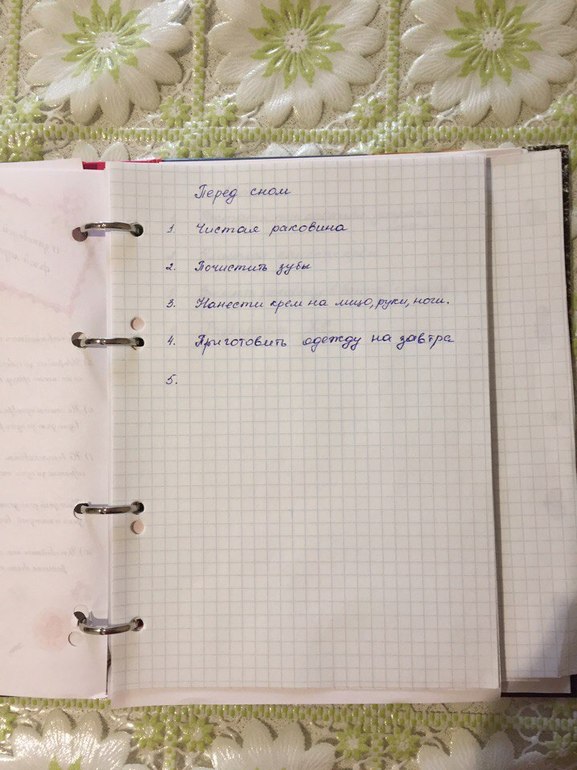 Перед сном
1. Чистая раковина
2. Почистить зубы
3. Нанести крем на лицо, руки, ноги.
4. Приготовить одежду на завтра
5.